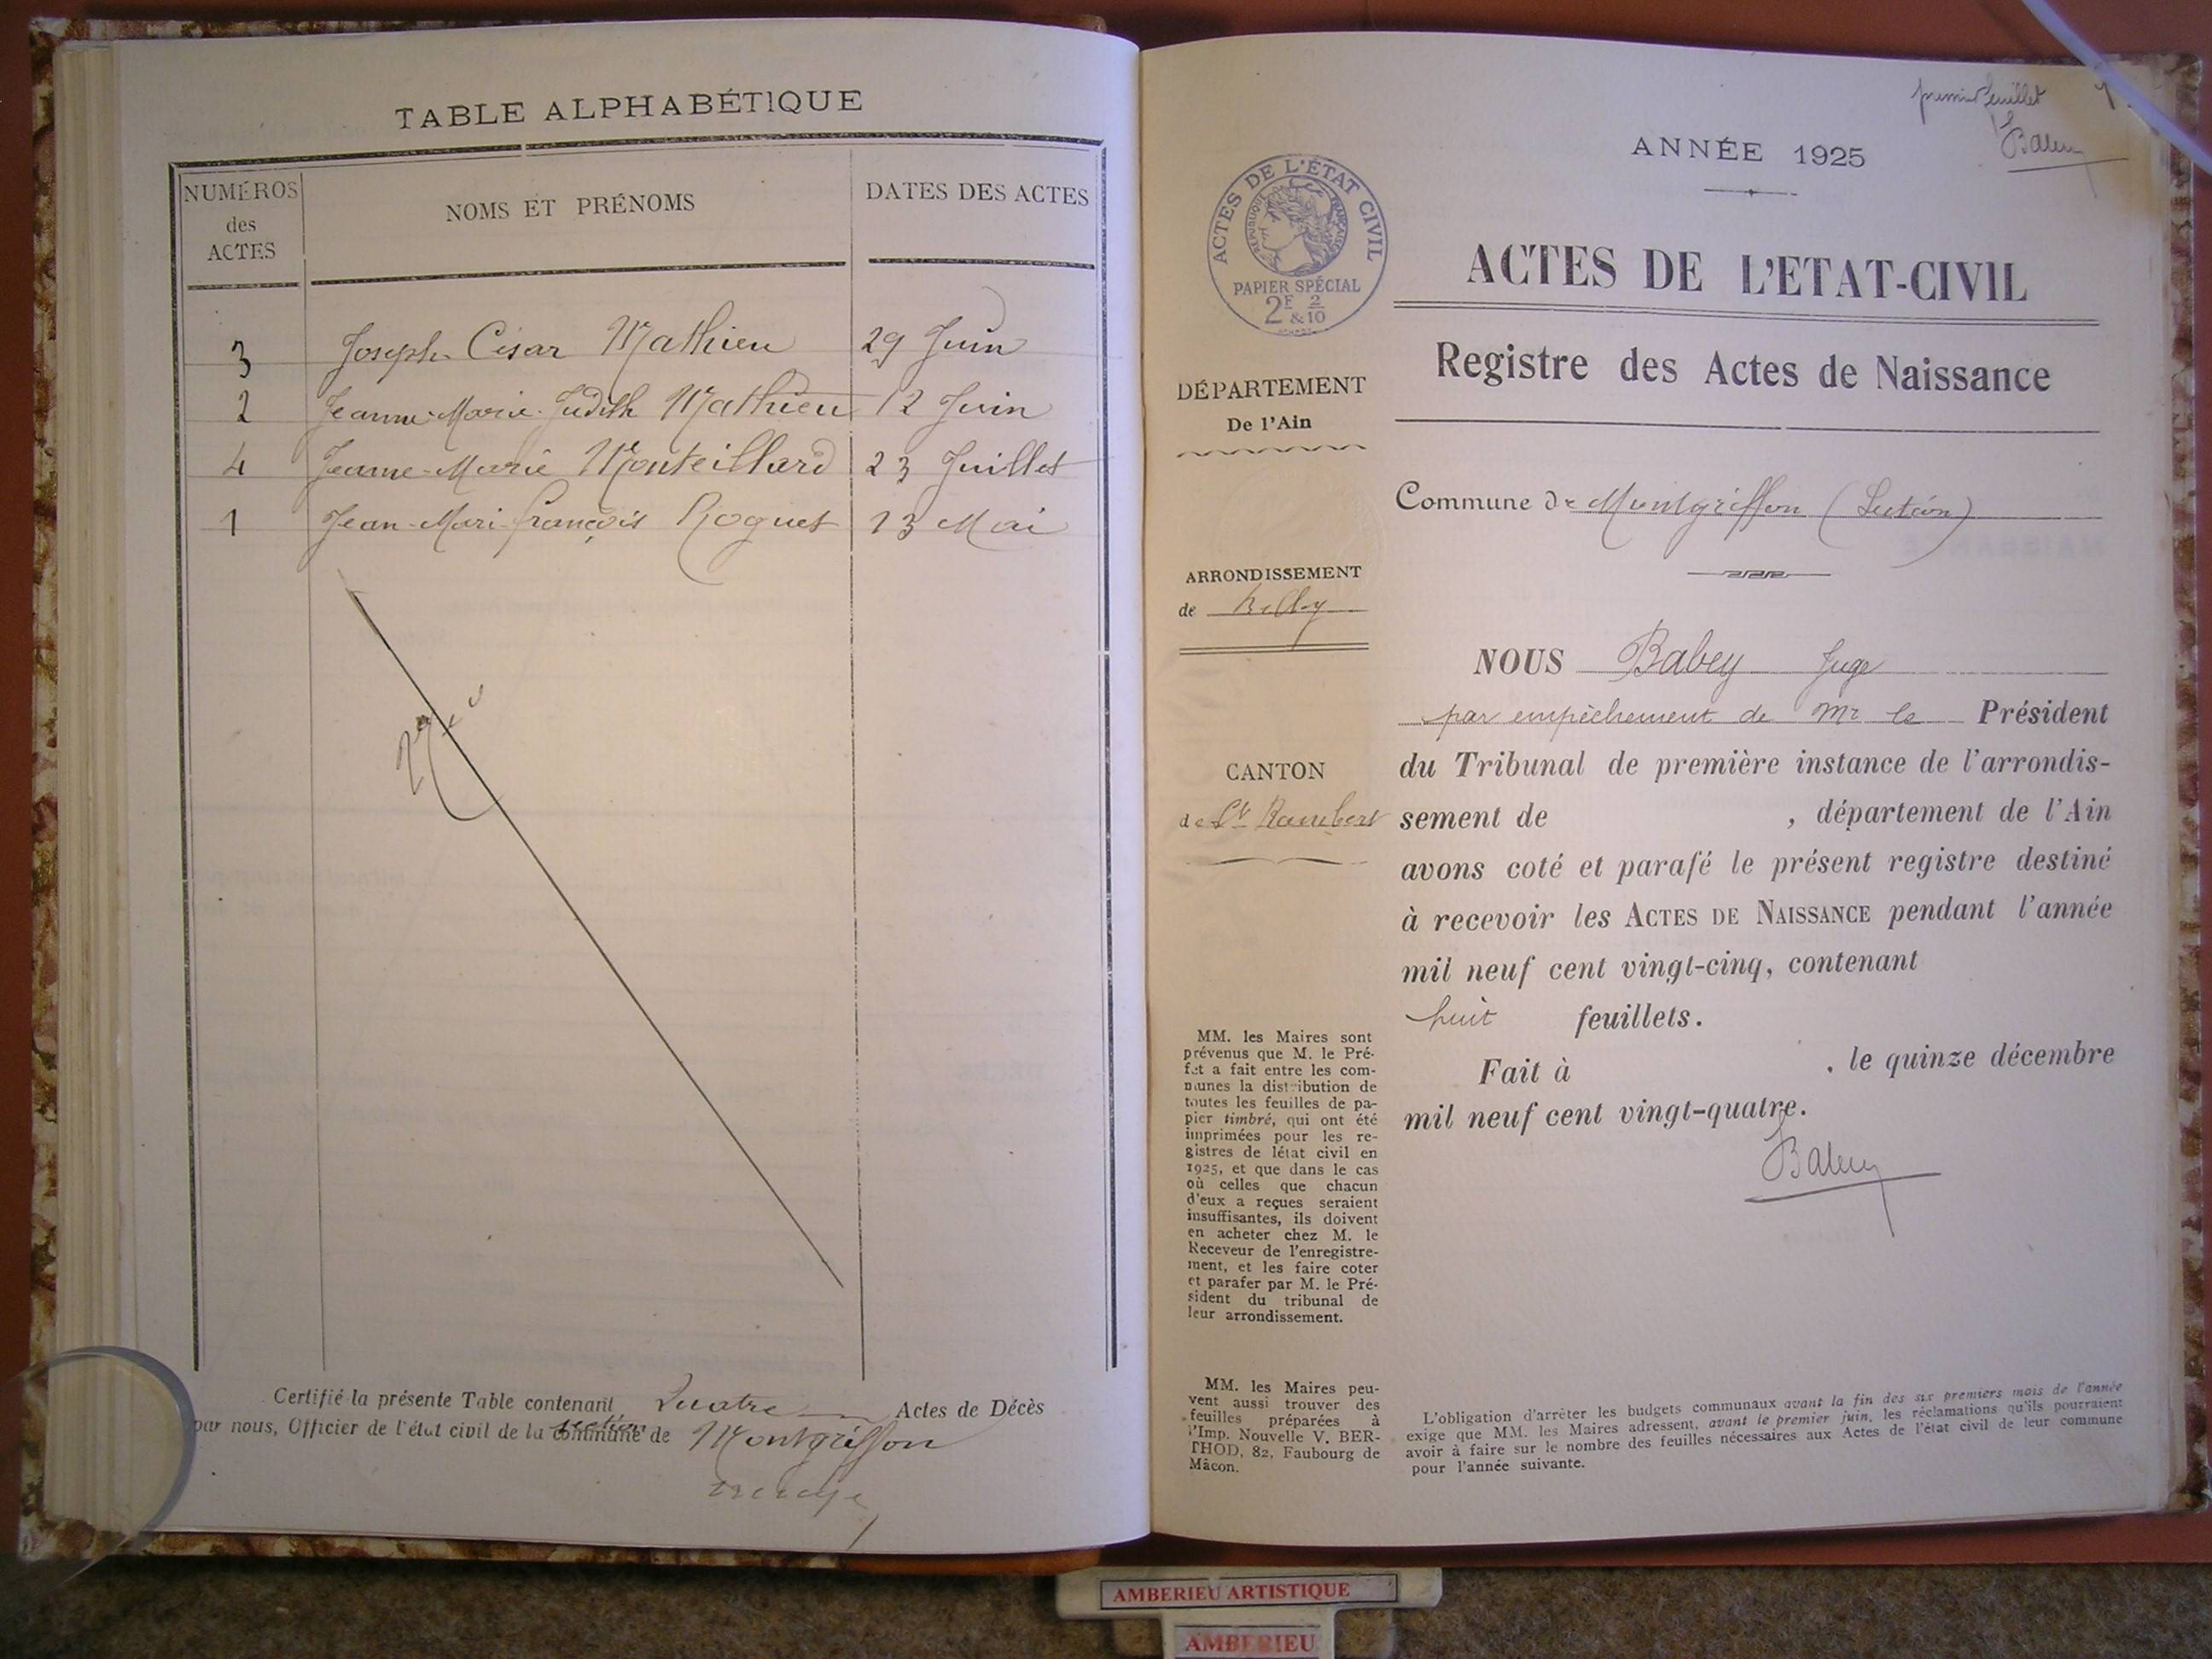 TABLE ALPHABÉTIQUE
NUMÉROS
des
ACTES
NOMS ET PRÉNOMS
DATES DES ACTES
3 Joseph César Mathieu 29 Juin
2 Jeanne-Marie-Judith Mathieu 12 Juin
4 Jeanne-Marie Monteillard 23 Juillet
1 Jean-Mari-françois Roguet 13 Mai
Certifié la présente Table contenant Quatre Actes de Décès
par nous, Officier de l'état civil de la commune section de Montgriffon
premier feuillet
Babey
ANNÉE 1925
ACTES DE L'ÉTAT CIVIL
RÉPUBLIQUE FRANÇAISE
PAPIER SPÉCIAL
2F 2
& 10
ACTES DE L'ETAT-CIVIL
Registre des Actes de Naissance
DÉPARTEMENT
De l'Ain
Commune de Montgriffon (Section)
ARRONDISSEMENT
de Belley
CANTON
de St Rambert
NOUS Babey Juge
par empêchement de Mr le Président
du Tribunal de première instance de l'arrondis-
sement de , département de l'Ain
avons coté et parafé le présent registre destiné
à recevoir les ACTES DE NAISSANCE pendant l'année
mil neuf cent vingt-cinq, contenant
huit feuillets.
Fait à , le quinze décembre
mil neuf cent vingt-quatre.
Babey
MM. les Maires sont
prévenus que M. le Pré-
fet a fait entre les com-
munes la distribution de
toutes les feuilles de pa-
pier timbré, qui ont été
imprimées pour les re-
gistres de létat civil en
1925, et que dans le cas
où celles que chacun
d'eux a reçues seraient
insuffisantes, ils doivent
en acheter chez M. le
Receveur de l'enregistre-
ment, et les faire coter
et parafer par M. le Pré-
sident du tribunal de
leur arrondissement.
MM. les Maires peu-
vent aussi trouver des
feuilles préparées à
l'Imp. Nouvelle V. BER-
THOD, 82, Faubourg de
Mâcon.
L'obligation d'arrêter les budgets communaux avant la fin des six premiers mois de l'année
exige que MM. les Maires adressent, avant le premier juin, les réclamations qu'ils pourraient
avoir à faire sur le nombre des feuilles nécessaires aux Actes de l'état civil de leur commune
pour l'année suivante.
AMBERIEU ARTISTIQUE
AMBERIEU